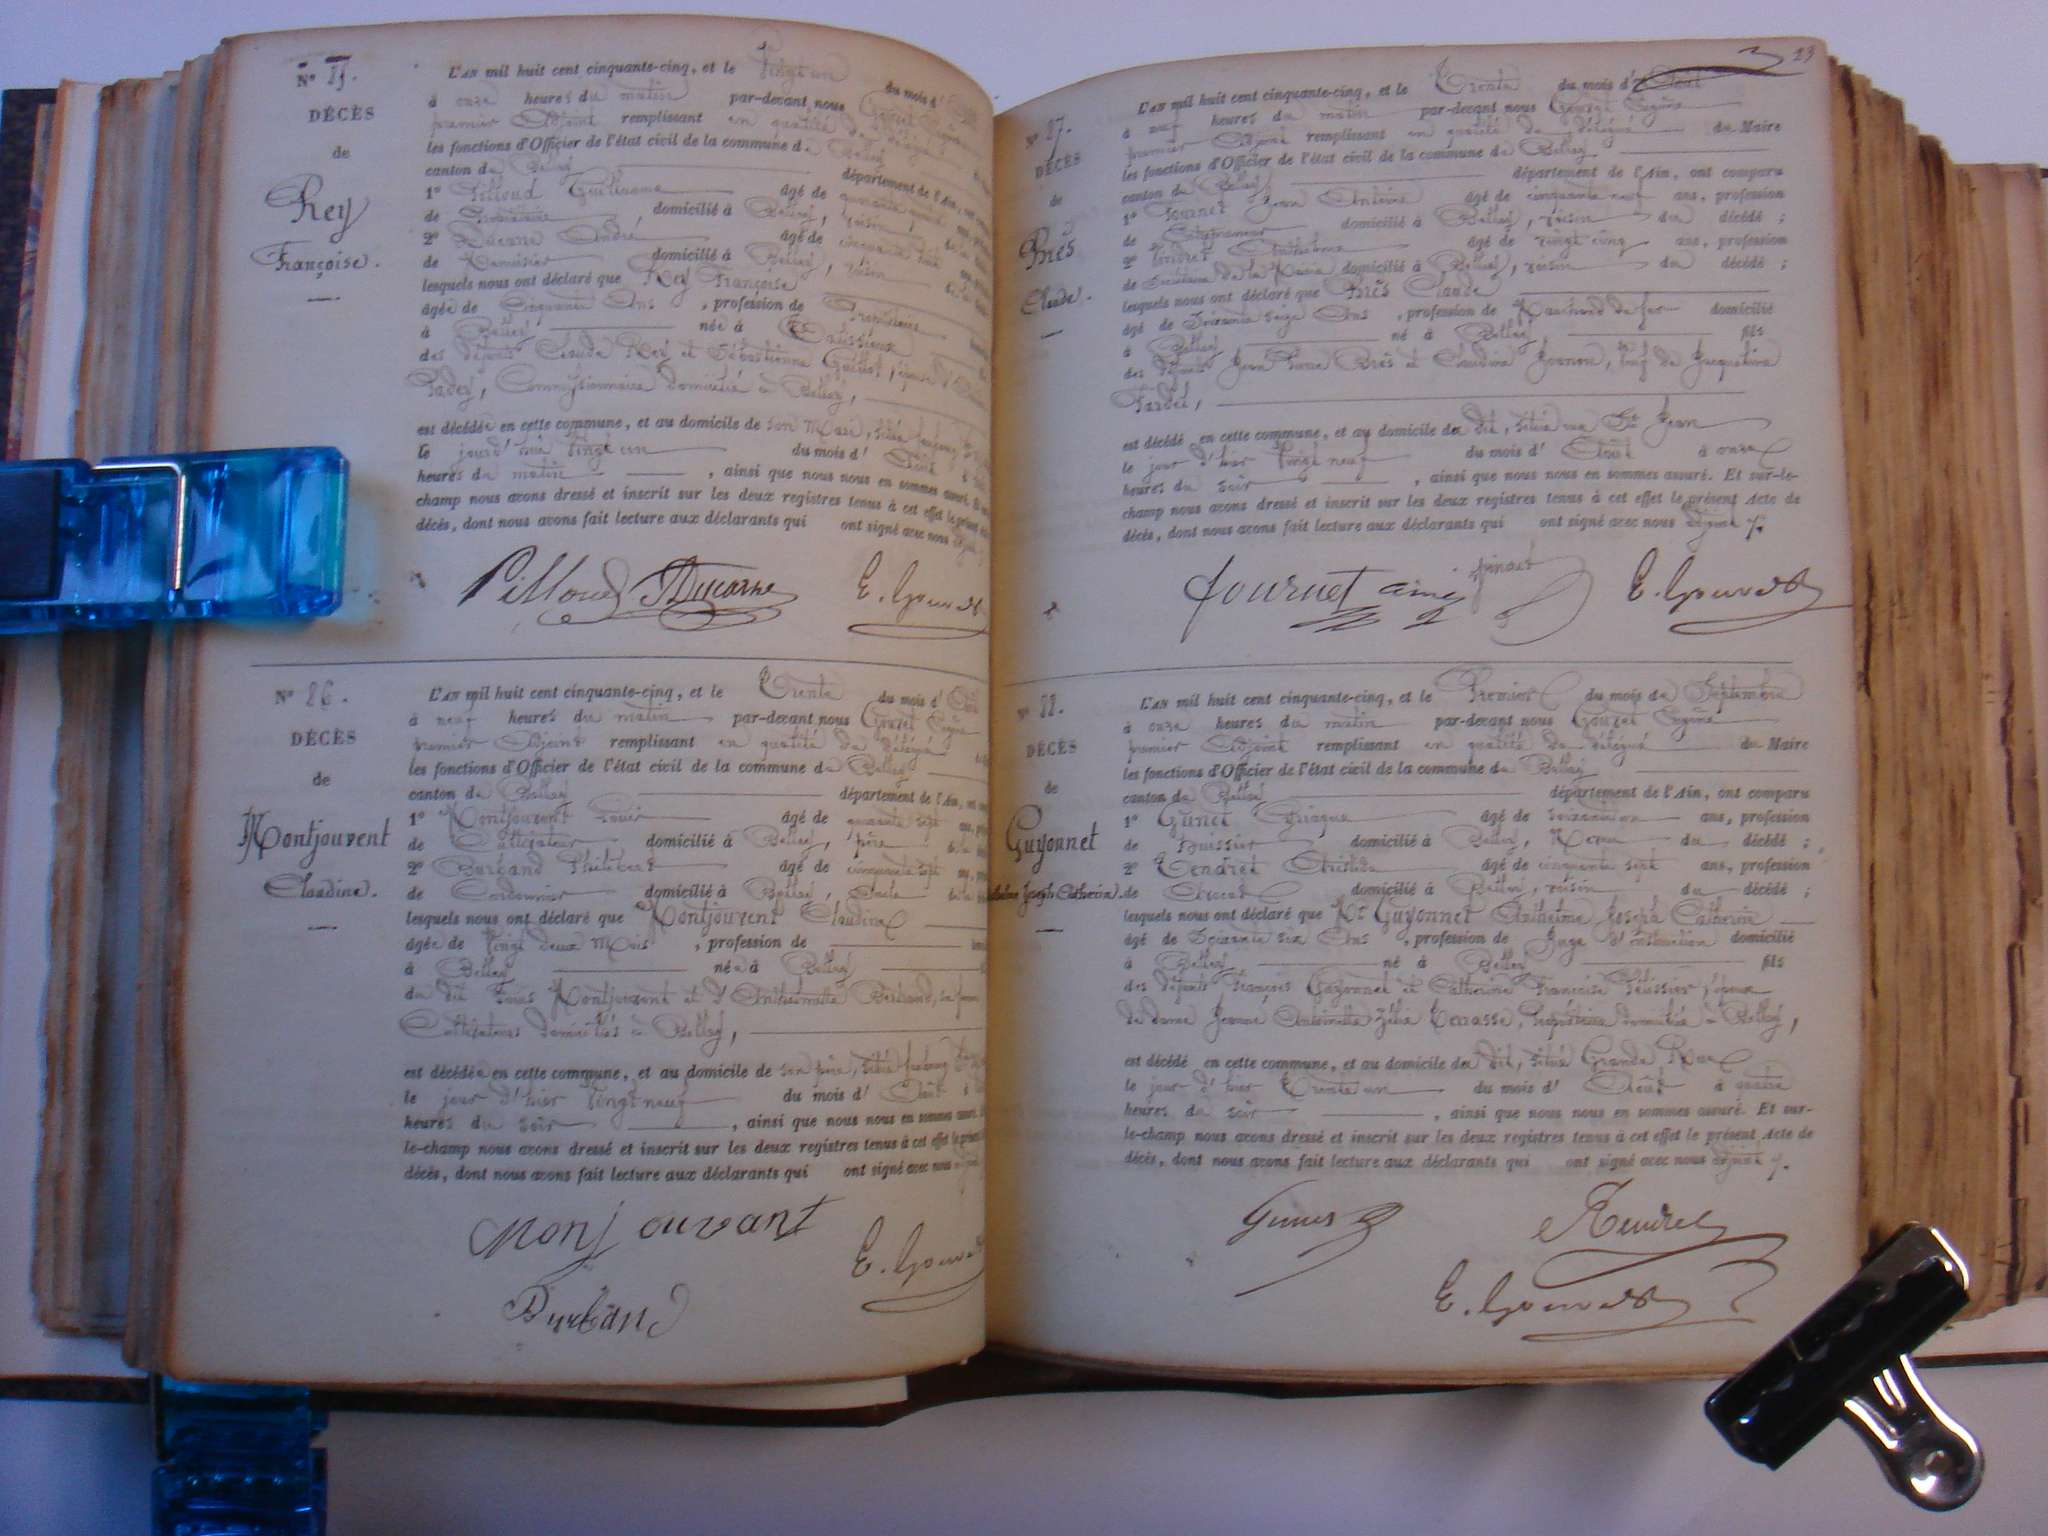 N° 85.
DÉCÈS
de
Rey
Françoise.
L'AN mil huit cent cinquante-cinq, et le Vingt un du mois d'
à onze heures du matin par-devant nous Gouvet
premier Adjoint remplissant en qualité de
les fonctions d'Officier de l'état civil de la commune de Belley
canton de Belley département de l'Ain, ont
1° Pilloud Guillaume âgé de quarante
de domicilié à Belley, voisin
2° Ducarre André âgé de cinquante
de domicilié à Belley, voisin
lesquels nous ont déclaré que Rey Françoise
âgée de Cinquante Ans, profession de
à Belley née à
des défunts Claude Rey et Sébastienne
Commissionnaire domicilié à Belley,
est décédée en cette commune, et au domicile de son Mari, situé
le jourd'hui Vingt un du mois d' Août à
heures du matin, ainsi que nous nous en sommes assuré. Et
champ nous avons dressé et inscrit sur les deux registres tenus à cet effet le présent
décès, dont nous avons fait lecture aux déclarants qui ont signé avec nous
Pilloud Ducarre E. Gouvet
N° 86.
DÉCÈS
de
Montjouvent
Claudine.
L'AN mil huit cent cinquante-cinq, et le Trente du mois d'
à neuf heures du matin par-devant nous Gouvet Eugène
premier Adjoint remplissant en qualité de délégué
les fonctions d'Officier de l'état civil de la commune de Belley
canton de Belley département de l'Ain, ont
1° Montjouvent Louis âgé de quarante sept
de Cultivateur domicilié à Belley, père
2° Burband Philibert âgé de cinquante sept
de Cordonnier domicilié à Belley, Oncle
lesquels nous ont déclaré que Montjouvent Claudine
âgée de Vingt deux Mois, profession de
à Belley née à Belley
du dit Louis Montjouvent et d'Anthelmette
Cultivateurs domiciliés à Belley,
est décédée en cette commune, et au domicile de son père, situé faubourg
le jour d'hier Vingt neuf du mois d' Août à
heures du soir, ainsi que nous nous en sommes assuré. Et
le-champ nous avons dressé et inscrit sur les deux registres tenus à cet effet le présent
décès, dont nous avons fait lecture aux déclarants qui ont signé avec nous
Monjouvant E. Gouvet
Burband
23
N° 87.
DÉCÈS
de
Brès
Claude.
L'AN mil huit cent cinquante-cinq, et le Trente du mois d' Août
à neuf heures du matin par-devant nous Gouvet Eugène
premier Adjoint remplissant en qualité de délégué du Maire
les fonctions d'Officier de l'état civil de la commune de Belley
canton de Belley département de l'Ain, ont comparu
1° Fournet Jean Antoine âgé de cinquante neuf ans, profession
de domicilié à Belley, voisin du décédé ;
2° Anthelme âgé de vingt cinq ans, profession
de Secrétaire de la Mairie domicilié à Belley, voisin du décédé ;
lesquels nous ont déclaré que Brès Claude
âgé de Soixante seize Ans, profession de Marchand de fer domicilié
à Belley né à Belley fils
des défunts Jean Pierre Brès et Claudine veuf de Jacqueline
Tardei,
est décédé en cette commune, et au domicile du dit, situé rue St Jean
le jour d'hier Vingt neuf du mois d' Août à onze
heures du soir, ainsi que nous nous en sommes assuré. Et sur-le-
champ nous avons dressé et inscrit sur les deux registres tenus à cet effet le présent Acte de
décès, dont nous avons fait lecture aux déclarants qui ont signé avec nous Adjoint
fournet ainé E. Gouvet
N° 88.
DÉCÈS
de
Guyonnet
Anthelme Joseph Catherin.
L'AN mil huit cent cinquante-cinq, et le Premier du mois de Septembre
à onze heures du matin par-devant nous Gouvet Eugène
premier Adjoint remplissant en qualité de délégué du Maire
les fonctions d'Officier de l'état civil de la commune de Belley
canton de Belley département de l'Ain, ont comparu
1° Gunet âgé de soixante ans, profession
de Huissier domicilié à Belley, Neveu du décédé ;
2° Tendret Aristide âgé de cinquante sept ans, profession
de Avocat domicilié à Belley, voisin du décédé ;
lesquels nous ont déclaré que Mr Guyonnet Anthelme Joseph Catherin
âgé de Soixante six Ans, profession de Juge d'instruction domicilié
à Belley né à Belley fils
des défunts François Guyonnet et Catherine Françoise Pélissier, époux
de dame Jeanne Antoinette Zélia Terrasse, domiciliée à Belley,
est décédé en cette commune, et au domicile du dit, situé Grande Rue
le jour d'hier Trente un du mois d' Août à quatre
heures du soir, ainsi que nous nous en sommes assuré. Et sur-
le-champ nous avons dressé et inscrit sur les deux registres tenus à cet effet le présent Acte de
décès, dont nous avons fait lecture aux déclarants qui ont signé avec nous Adjoint
Gunet ATendret
E. Gouvet